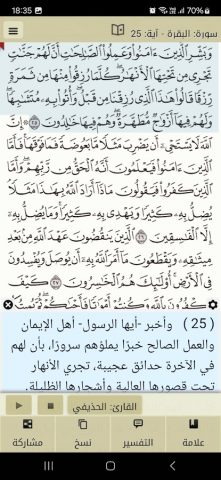 18:35
70%
سورة: البقرة - آية: 25
وَبَشِّرِ ٱلَّذِينَ ءَامَنُوا۟ وَعَمِلُوا۟ ٱلصَّٰلِحَٰتِ أَنَّ لَهُمْ جَنَّٰتٍ
تَجْرِى مِن تَحْتِهَا ٱلْأَنْهَٰرُ كُلَّمَا رُزِقُوا۟ مِنْهَا مِن ثَمَرَةٍ
رِّزْقًا قَالُوا۟ هَٰذَا ٱلَّذِى رُزِقْنَا مِن قَبْلُ وَأُتُوا۟ بِهِۦ مُتَشَٰبِهًا
وَلَهُمْ فِيهَآ أَزْوَٰجٌ مُّطَهَّرَةٌ وَهُمْ فِيهَا خَٰلِدُونَ ٢٥ إِنَّ
ٱللَّهَ لَا يَسْتَحْىِۦٓ أَن يَضْرِبَ مَثَلًا مَّا بَعُوضَةً فَمَا فَوْقَهَا فَأَمَّا
ٱلَّذِينَ ءَامَنُوا۟ فَيَعْلَمُونَ أَنَّهُ ٱلْحَقُّ مِن رَّبِّهِمْ وَأَمَّا
ٱلَّذِينَ كَفَرُوا۟ فَيَقُولُونَ مَاذَآ أَرَادَ ٱللَّهُ بِهَٰذَا مَثَلًا
يُضِلُّ بِهِۦ كَثِيرًا وَيَهْدِى بِهِۦ كَثِيرًا وَمَا يُضِلُّ بِهِۦٓ
إِلَّا ٱلْفَٰسِقِينَ ٢٦ ٱلَّذِينَ يَنقُضُونَ عَهْدَ ٱللَّهِ مِنۢ بَعْدِ
مِيثَٰقِهِۦ وَيَقْطَعُونَ مَآ أَمَرَ ٱللَّهُ بِهِۦٓ أَن يُوصَلَ وَيُفْسِدُونَ
فِى ٱلْأَرْضِ أُو۟لَٰٓئِكَ هُمُ ٱلْخَٰسِرُونَ ٢٧ كَيْفَ
تَكْفُرُونَ بِٱللَّهِ وَكُنتُمْ أَمْوَٰتًا فَأَحْيَٰكُمْ ثُمَّ يُمِيتُكُمْ
(25) وأخبر -أيها الرسول- أهل الإيمان
والعمل الصالح خبرًا يملؤهم سرورًا، بأن لهم
في الآخرة حدائق عجيبة، تجري الأنهار
تحت قصورها العالية وأشجارها الظليلة.
القارئ: الحذيفي
علامة التفسير نسخ مشاركة